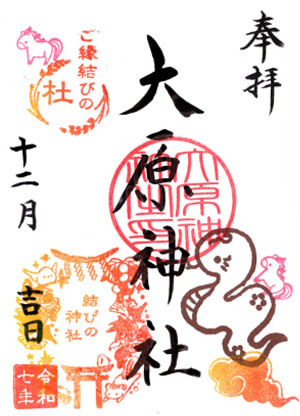 奉拝
大原神社
ご縁結びの
杜
十二月
吉日
結びの
神社
令和
七年